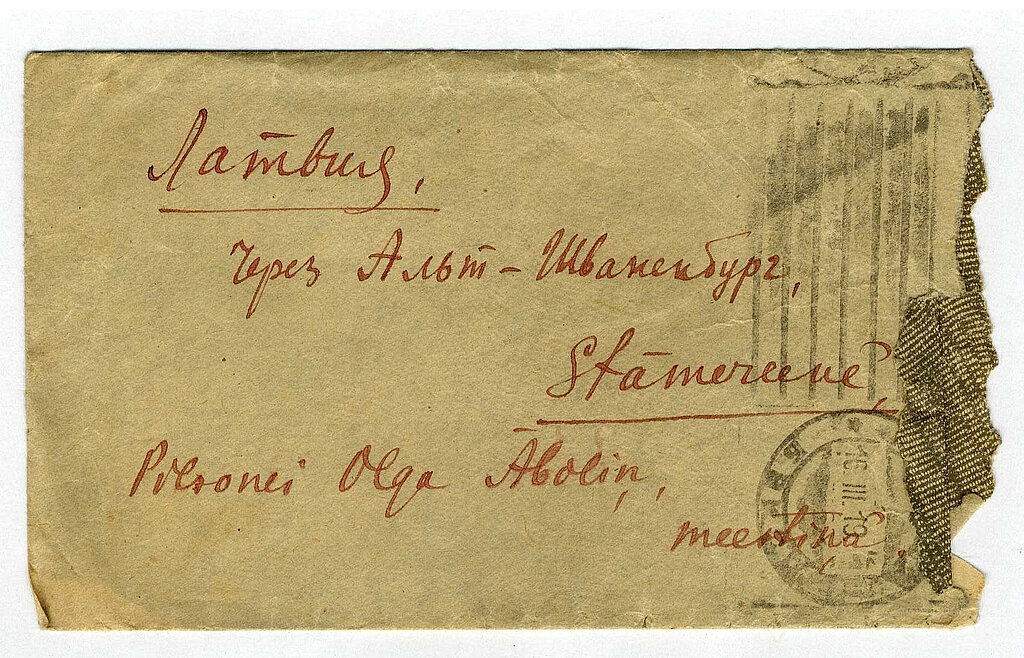 Латвия,
Через Альт-Шваненбург,
Stāmereene,
Pilsonei Olga Āboliņ,
meestiņā.
16 III 19